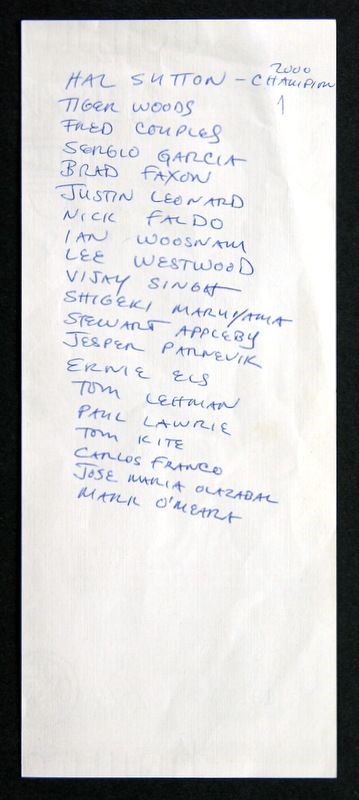 2000
HAL SUTTON - CHAMPION
1
TIGER WOODS
FRED COUPLES
SERGIO GARCIA
BRAD FAXON
JUSTIN LEONARD
NICK FALDO
IAN WOOSNAM
LEE WESTWOOD
VIJAY SINGH
SHIGEKI MARUYAMA
STEWART APPLEBY
JESPER PARNEVIK
ERNIE ELS
TOM LEHMAN
PAUL LAWRIE
TOM KITE
CARLOS FRANCO
JOSE MARIA OLAZABAL
MARK O'MEARA